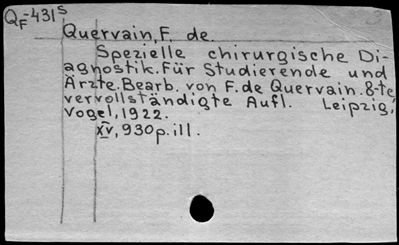 QF-431s
Quervain, F. de.
Spezielle chirurgische Di-
agnostik. Für Studierende und
Ärzte. Bearb. von F. de Quervain. 8-te
vervollständigte Aufl. Leipzig,
Vogel, 1922.
XV, 930 p. ill.